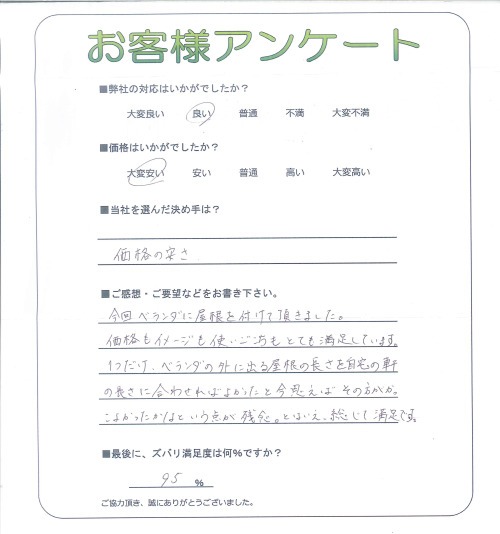 お客様アンケート
■弊社の対応はいかがでしたか？
大変良い 良い 普通 不満 大変不満
■価格はいかがでしたか？
大変安い 安い 普通 高い 大変高い
■当社を選んだ決め手は？
価格の安さ
■ご感想・ご要望などをお書き下さい。
今回ベランダに屋根を付けて頂きました。
価格もイメージも使いごこちもとても満足しています。
1つだけ、ベランダの外に出る屋根の長さを自宅の軒
の長さに合わせればよかったと今思えばその方が
よかったかなという点が残念。とはいえ、総じて満足です。
■最後に、ズバリ満足度は何%ですか？
95 %
ご協力頂き、誠にありがとうございました。